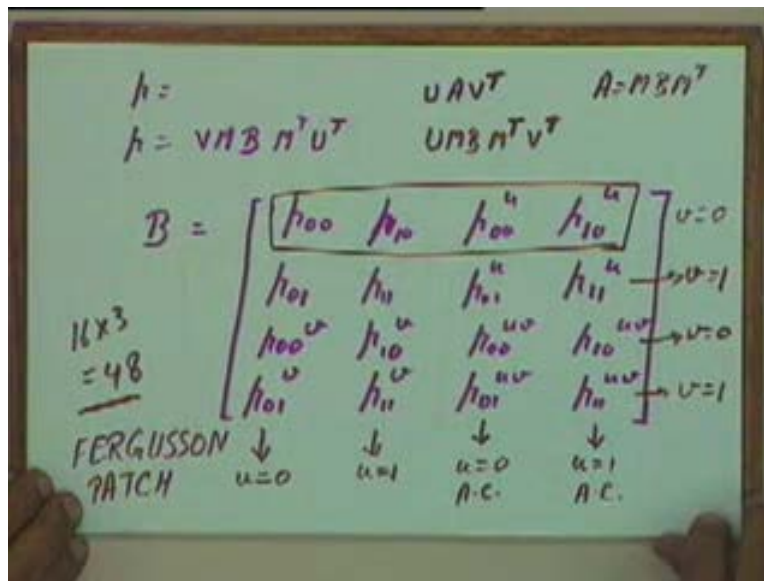 p = UAVᵀ A=MBMᵀ
p = VMB MᵀUᵀ UMB MᵀVᵀ
B = [ p₀₀ p₁₀ p₀₀ᵘ p₁₀ᵘ ] v=0
p₀₁ p₁₁ p₀₁ᵘ p₁₁ᵘ → v=1
p₀₀ᵛ p₁₀ᵛ p₀₀ᵘᵛ p₁₀ᵘᵛ → v=0
p₀₁ᵛ p₁₁ᵛ p₀₁ᵘᵛ p₁₁ᵘᵛ → v=1
16×3
=48
FERGUSSON
PATCH
↓ ↓ ↓ ↓
u=0 u=1 u=0 u=1
A.C. A.C.